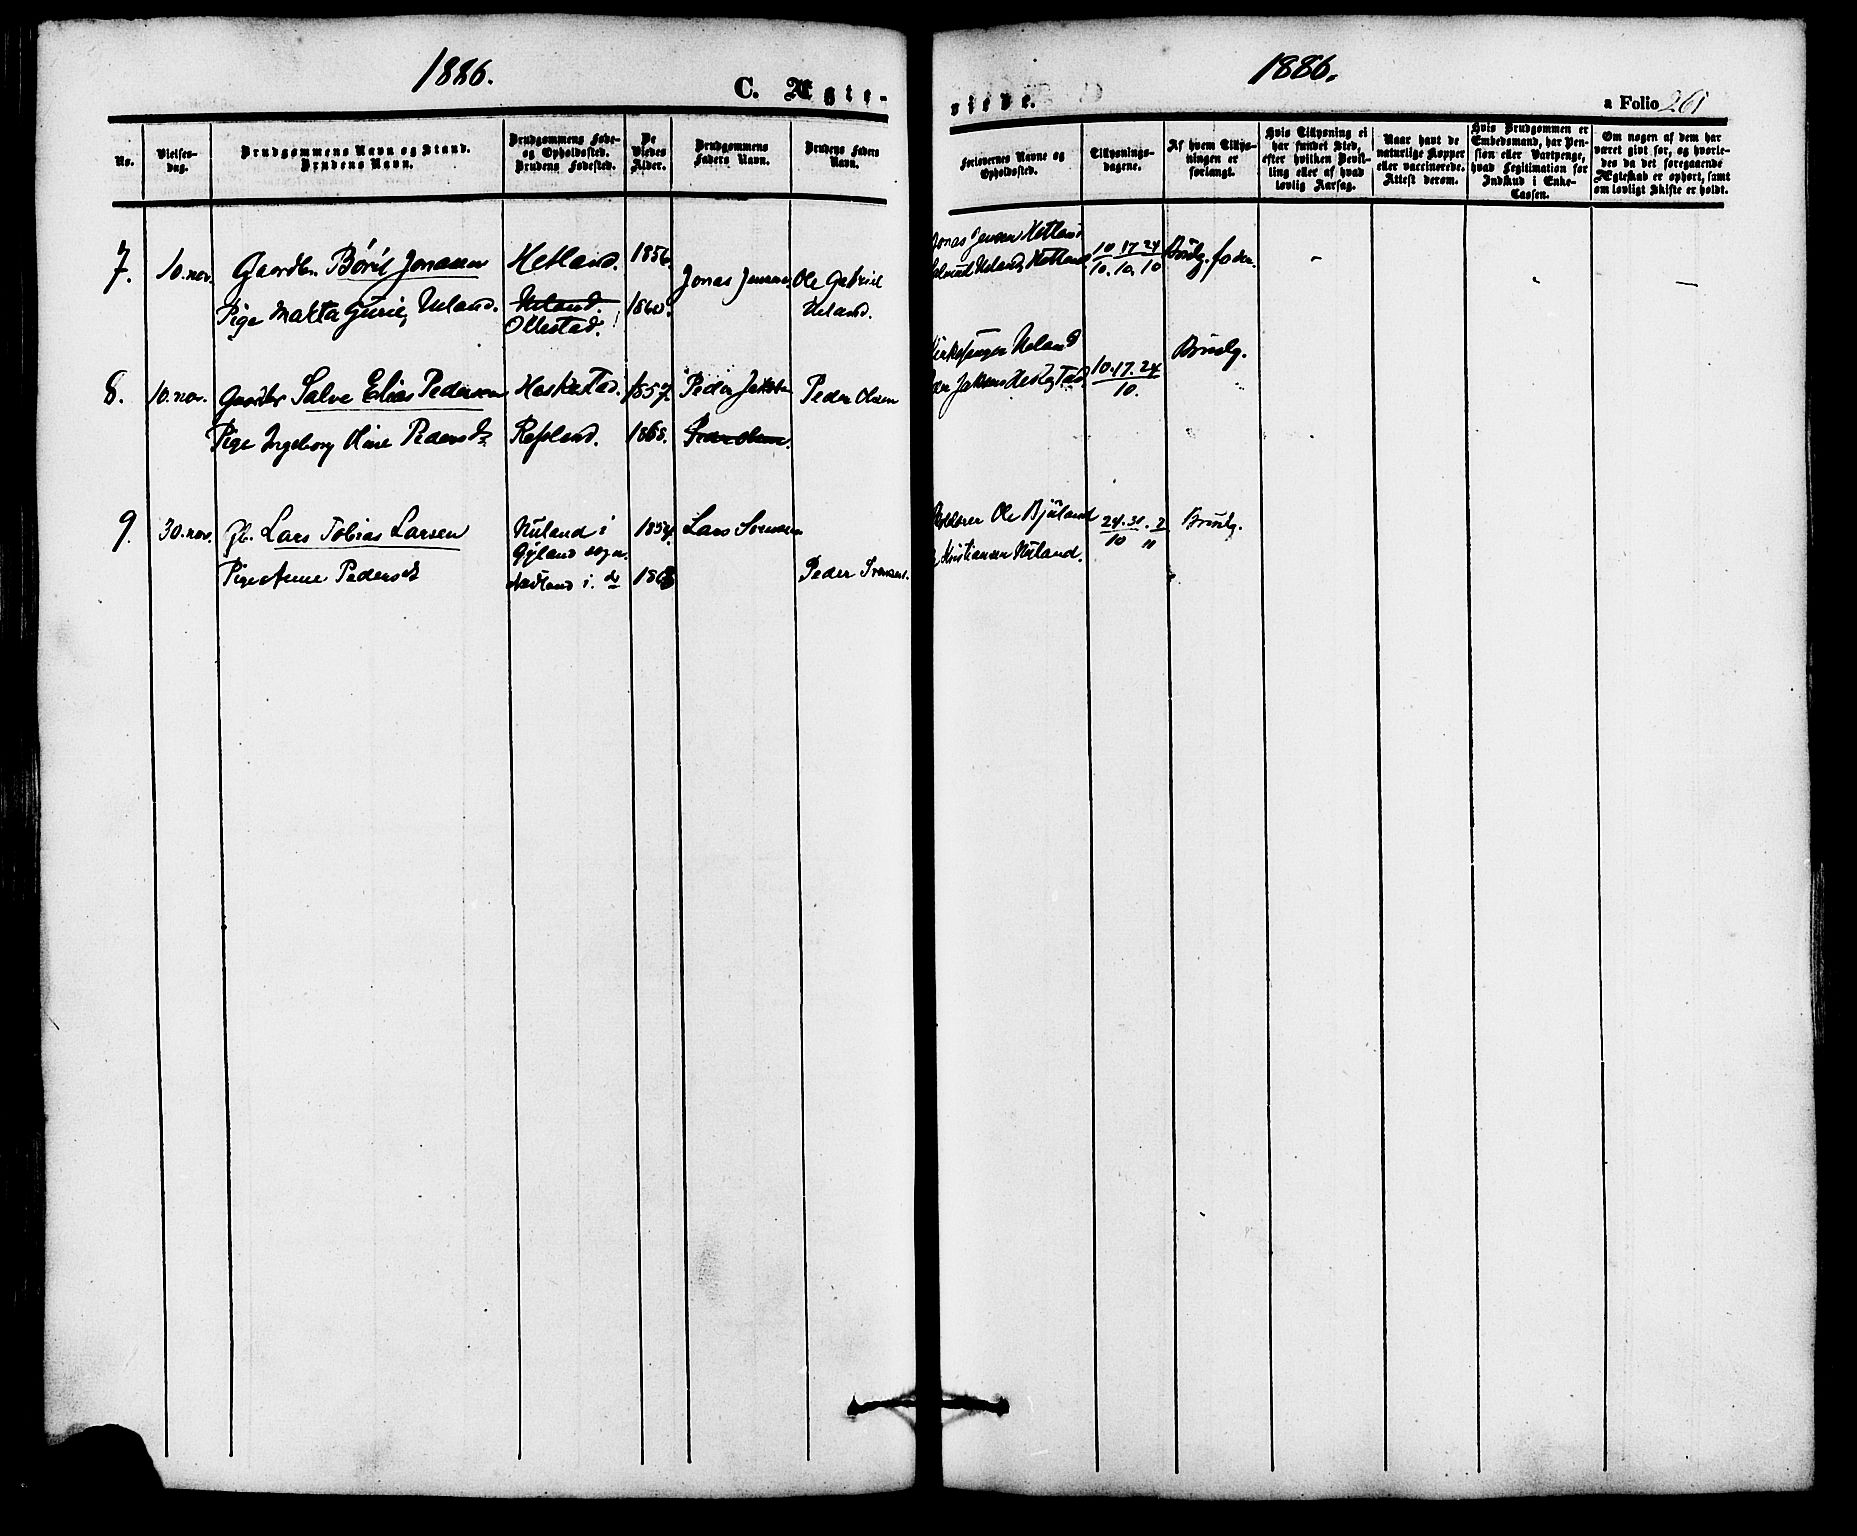 1886.
C. Ægte-
No.
Vielses-
dag.
Brudgommens Navn og Stand.
Brudens Navn.
Brudgommens Føde-
og Opholdssted.
Brudens Fødested.
De
Viedes
Alder.
Brudgommens
Faders Navn.
Brudens Faders
Navn.
7. 10. nov. Børil Jonassen Hetland. 1856.
Jonas Jensen Ole Gabriel
Pige Malta Ueland. Ueland. 1860. Ueland.
Ollestad.
8. 10. nov. Salve Elias Pedersen Heskestad. 1857. Peder Peder Olsen
Pige Ingeborg Oline Pedersd. Refsland. 1868. Peder Olsen.
9. 30. nov. Lars Tobias Larsen Nuland i 1854. Lars
Gyland sogn.
Pige Anne Pedersd. i do 186 Peder
1886.
viede.
a Folio 261
Forlovernes Navne og
Opholdssted.
Tillysnings-
dagene.
Af hvem Tillys-
ningen er
forlangt.
Hvis Tillysning ei
har fundet Sted,
efter hvilken Bevil-
ling eller af hvad
lovlig Aarsag.
Naar havt de
naturlige Kopper
eller vaccinerede.
Attest derom.
Hvis Brudgommen er
Embedsmand, har Pen-
sion eller Vartpenge,
hvad Legitimation for
Indskud i Enke-
Cassen.
Om nogen af dem har
været gift før, og hvorle-
des da det foregaaende
Ægteskab er ophørt, samt
om lovligt Skifte er holdt.
Jonas Jensen Hetland
Ueland, Hetland 10. 17. 24 Brudg. fader.
10. 10. 10
Ueland Brudg.
Heskestad 10. 17. 24
10.
Ole Bjuland 24. 31. 7 Brudg.
10 11
Kristiansen Nuland.